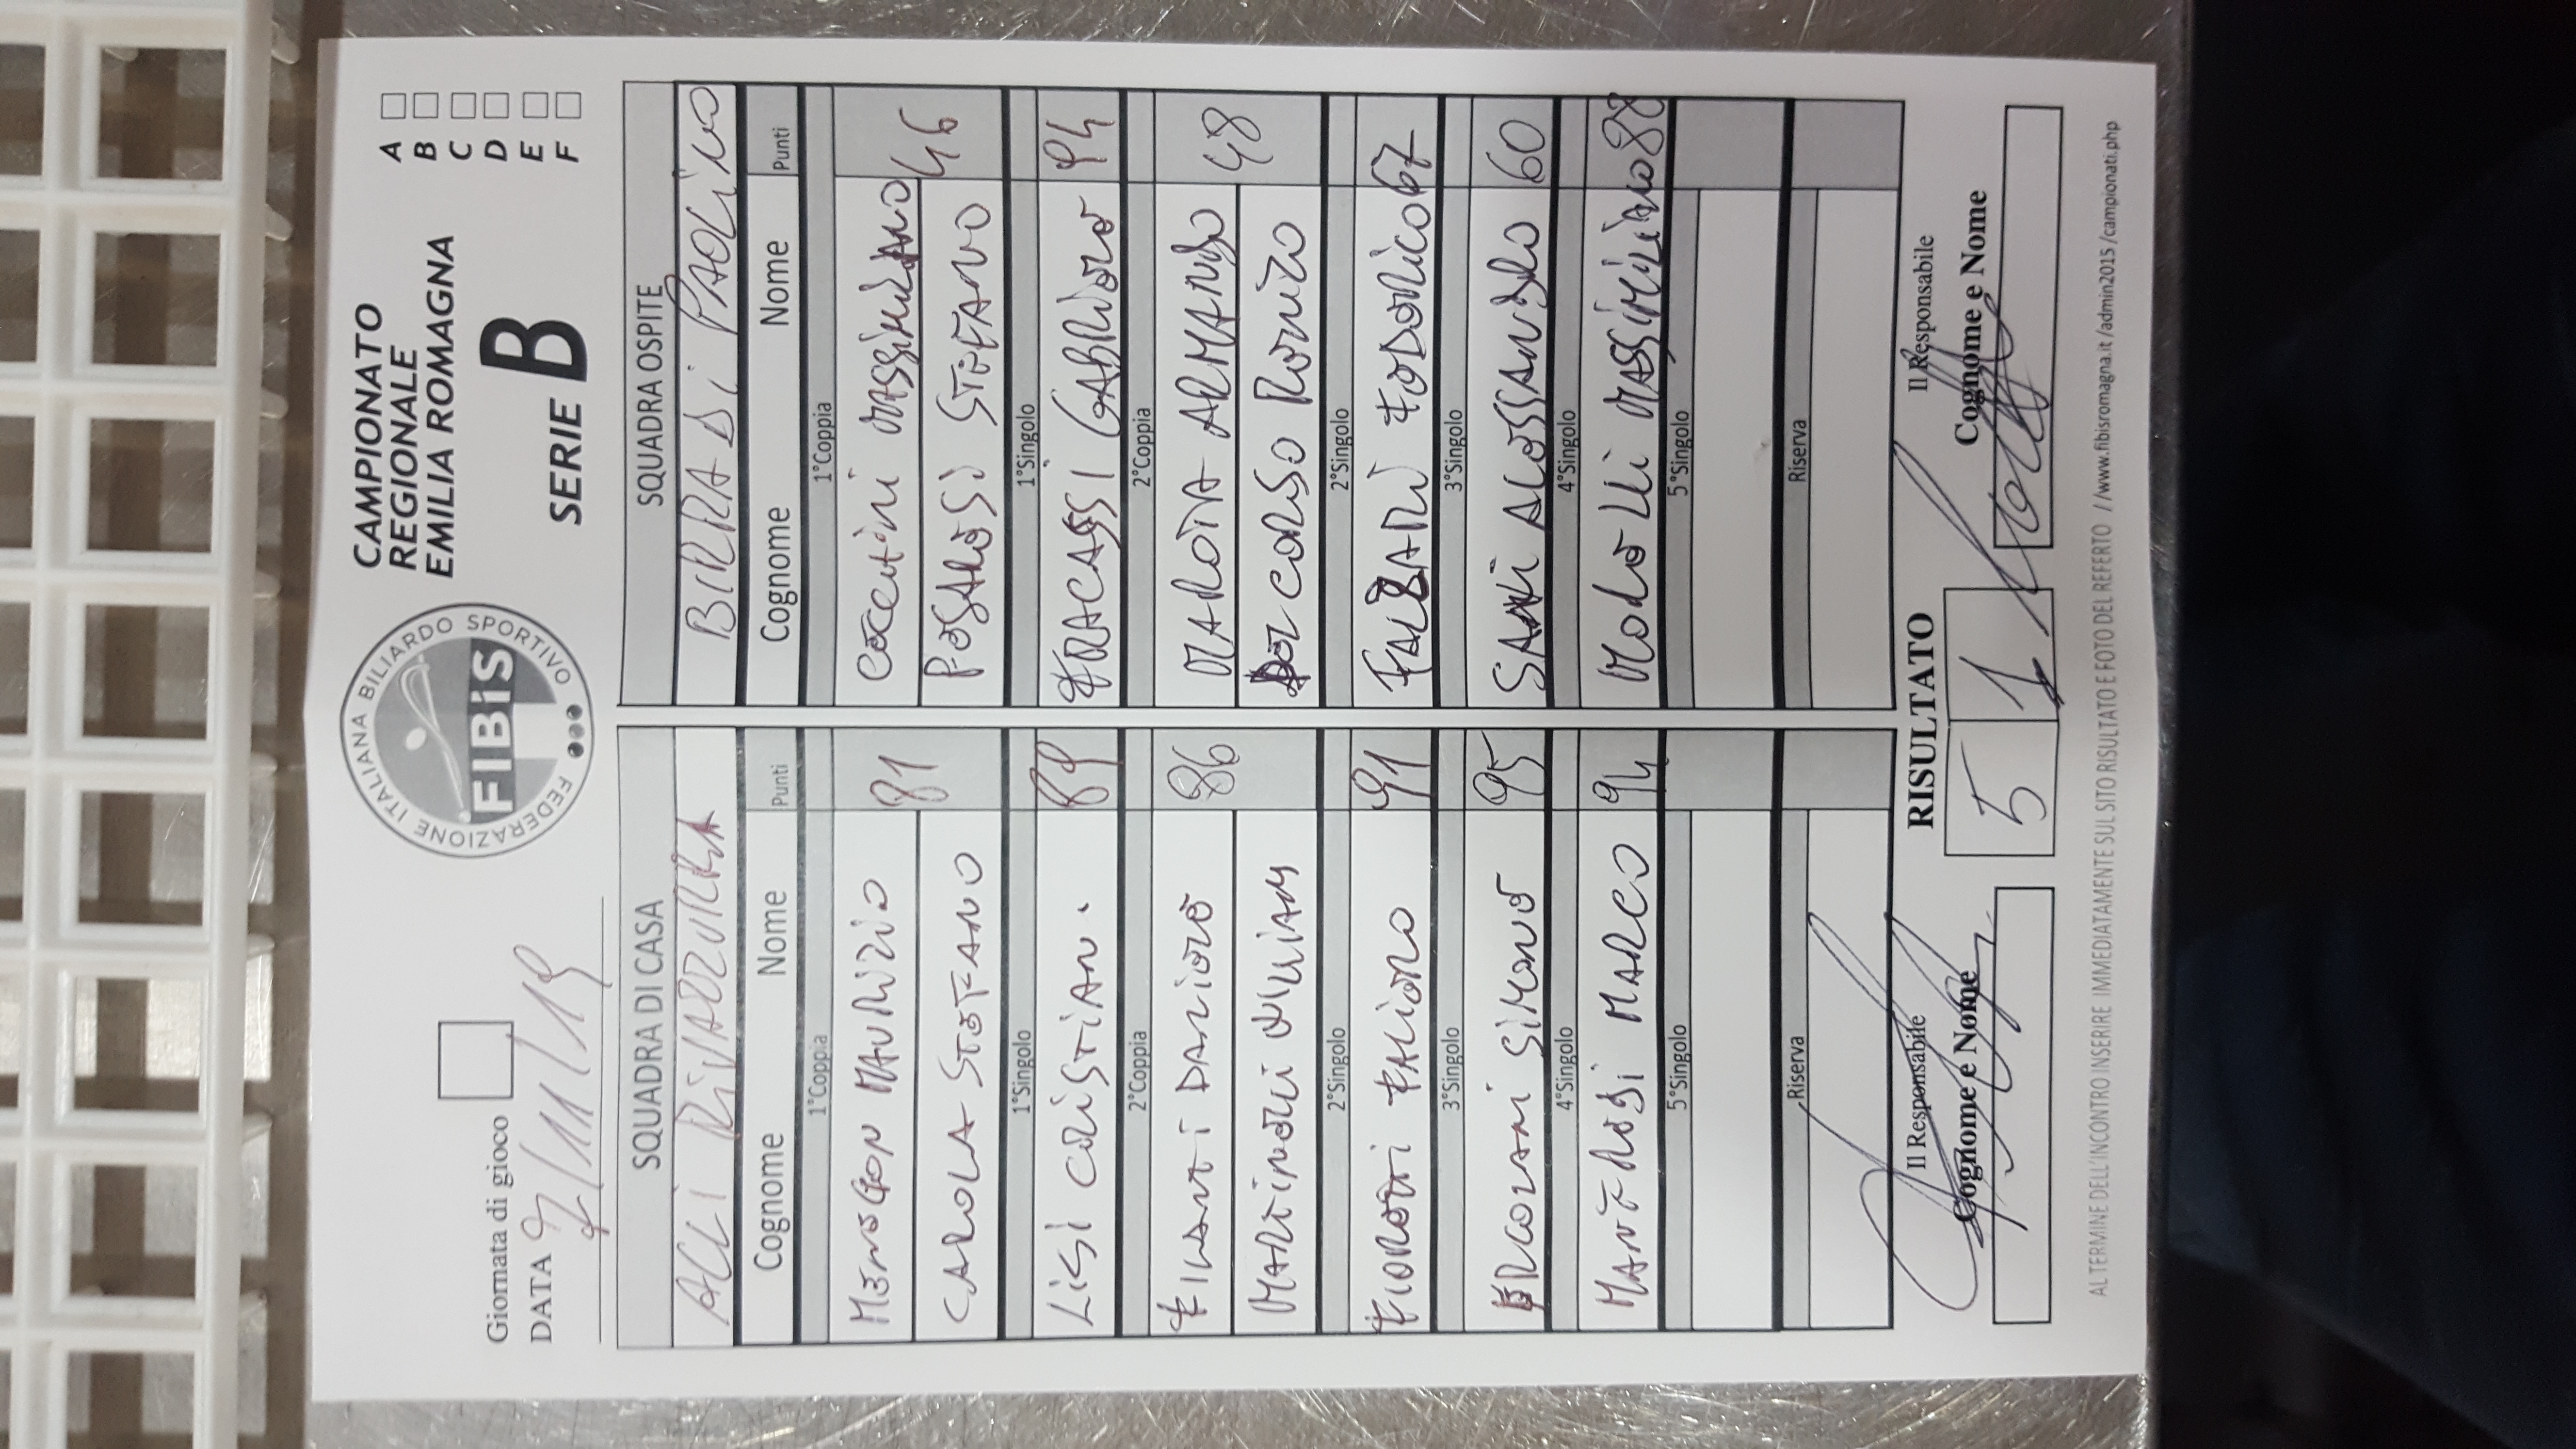 Giornata di gioco
DATA 7/11/19
FEDERAZIONE ITALIANA BILIARDO SPORTIVO
FIBiS
CAMPIONATO
REGIONALE
EMILIA ROMAGNA
SERIE B
A
B
C
D
E
F
SQUADRA DI CASA SQUADRA OSPITE
ACLI RIVAZZURRA BIRRA DI PAOLINO
Cognome Nome Punti Cognome Nome Punti
1°Coppia 1°Coppia
MENEGON MAURIZIO 81 MASSIMILIANO 46
CAROLA STEFANO PESARESI STEFANO
1°Singolo 1°Singolo
LISI CRISTIAN. 89 FRACASSI GABRIELE 94
2°Coppia 2°Coppia
FILANTI DANIELE 86 MAROTA ARMANDO 48
MARTINELLI WILLIAM DEL CORSO
2°Singolo 2°Singolo
FIORETTI 91 FALZARI FEDERICO 67
3°Singolo 3°Singolo
ERCOLANI SIMONE 95 SANTI ALESSANDRO 60
4°Singolo 4°Singolo
MANFREDI MARCO 94 MORELLI MASSIMILIANO 88
5°Singolo 5°Singolo
Riserva Riserva
Il Responsabile RISULTATO Il Responsabile
Cognome e Nome 5 1 Cognome e Nome
AL TERMINE DELL'INCONTRO INSERIRE IMMEDIATAMENTE SUL SITO RISULTATO E FOTO DEL REFERTO //www.fibisromagna.it /admin2015 /campionati.php